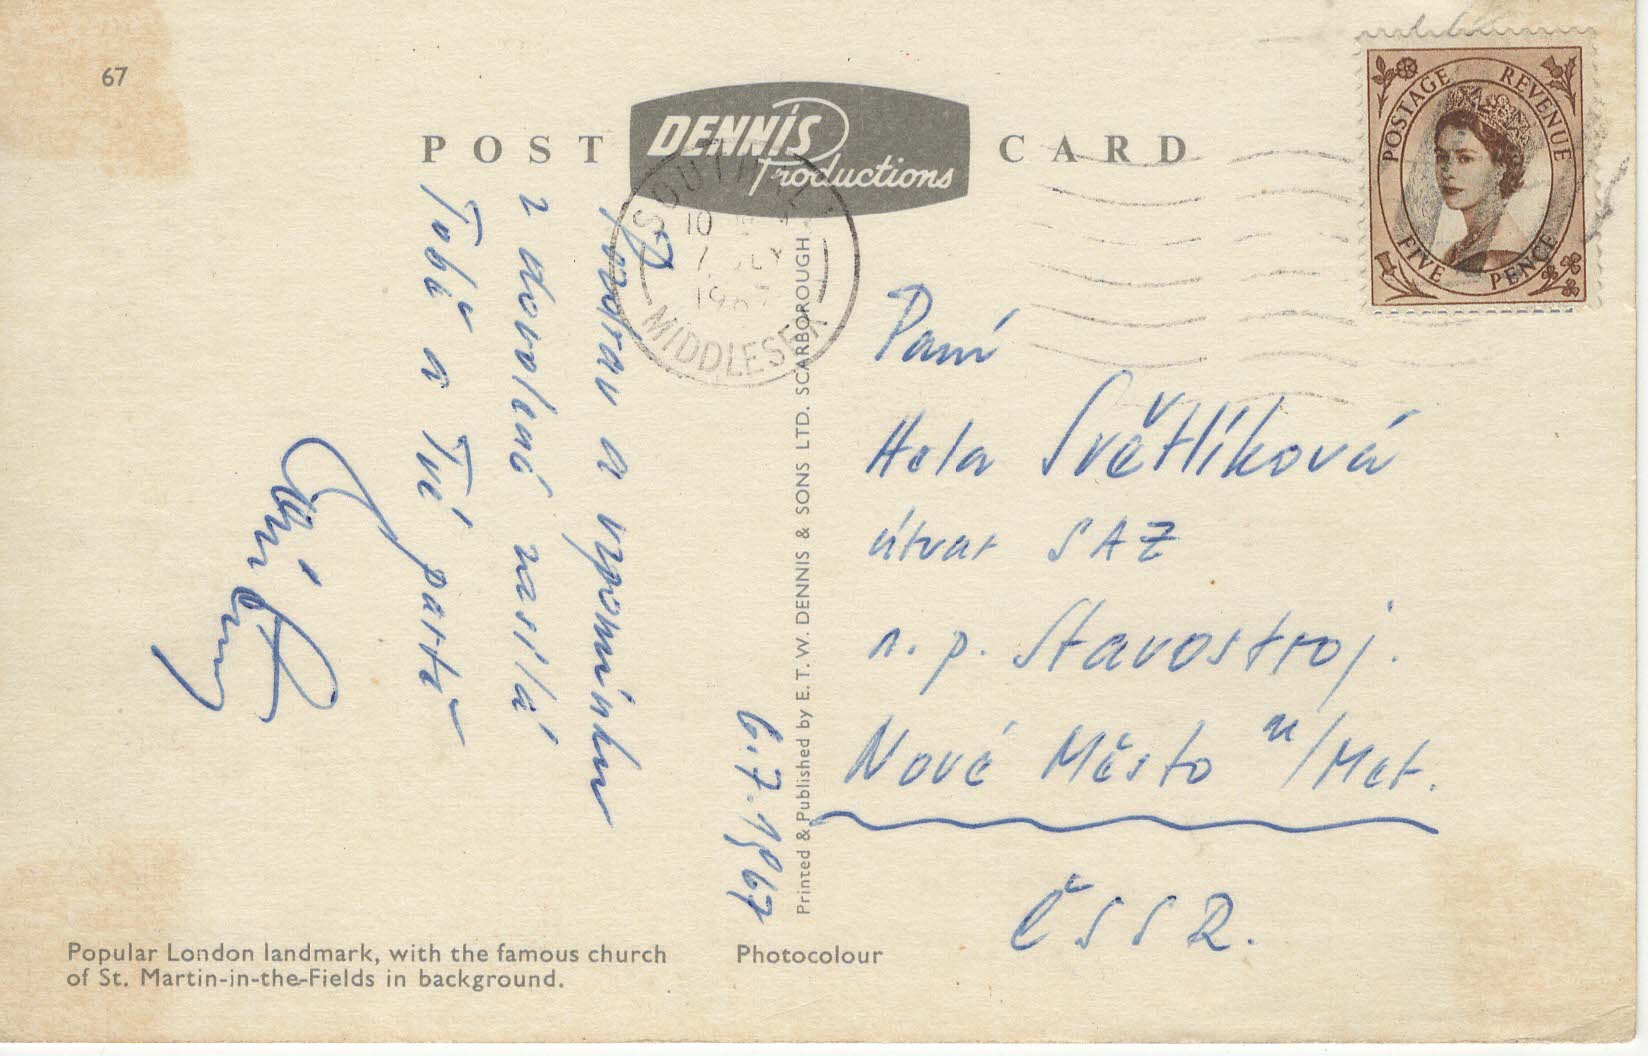 67
POST CARD
DENNIS Productions
POSTAGE REVENUE
FIVE PENCE
SOUTHALL
10
7
196
MIDDLESEX
Pozdrav a vzpomínku
z dovolené zasílá
Tobě a Tvé partě
6.7.1967
Printed & Published by E. T. W. DENNIS & SONS LTD. SCARBOROUGH
Paní
Hela Světlíková
útvar SAZ
n. p. Stavostroj.
Nové Město n/Met.
ČSSR.
Popular London landmark, with the famous church
of St. Martin-in-the-Fields in background.
Photocolour